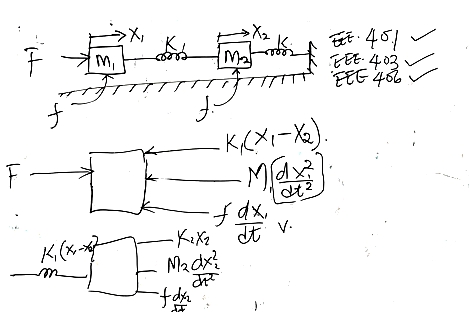 X₁ X₂
F M₁ K₁ M₂ K
f f
EEE 401 ✓
EEE 403 ✓
EEE 406 ✓
F K₁(X₁-X₂)
M₁ dx₁²/dt²
f dx₁/dt v.
K₁(x₁-x₂) K₂x₂
M₂ dx₂²/dt²
f dx₂/dt